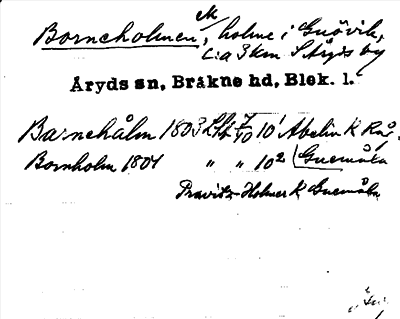 ek
Borneholmen, holme i Gnövik,
c:a 3 km S Åryds by
Åryds sn, Bräkne hd, Blek. l.
Barnehålm 1803 7/10 10¹ Abelin K
Bornholm 1804 " " 10² Guemåla
Pravitz-Holmer K Guemåla